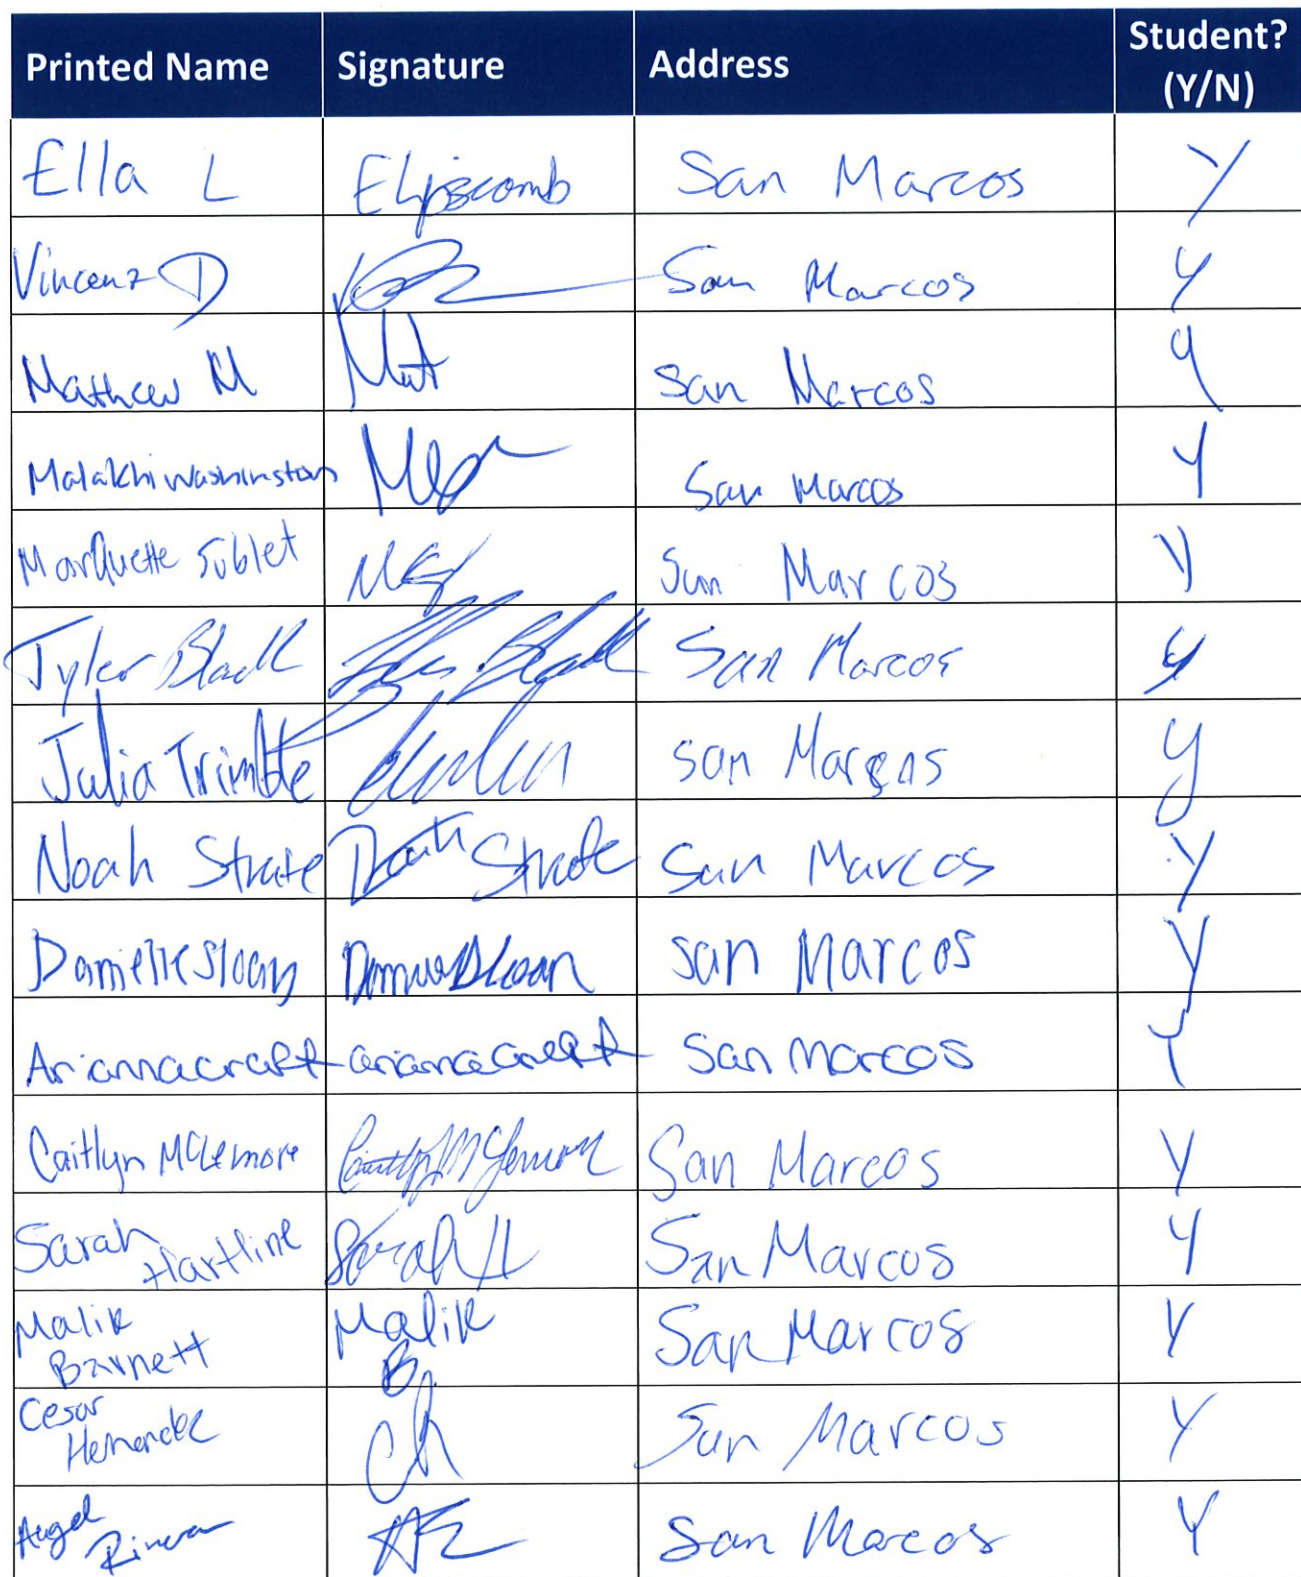 Printed Name Signature Address Student? (Y/N)
Ella L Elipscomb San Marcos Y
Vincenz D San Marcos Y
Mathew M Mat San Marcos Y
Malakhi Washinston San Marcos Y
MarQuette Sublet San Marcos Y
Tyler Black Black San Marcos y
Julia Trimble San Marcos y
Noah Strate Strate San Marcos Y
Danielle Sloan Sloan San Marcos Y
Arianna craft arianna craft San marcos Y
Caitlyn McLemore Caitlyn McLemore San Marcos Y
Sarah Hartline Sarah H San Marcos Y
Malik Barnett Malik B San Marcos Y
Cesar Hernandez CH San Marcos Y
Angel Rivera San Marcos Y